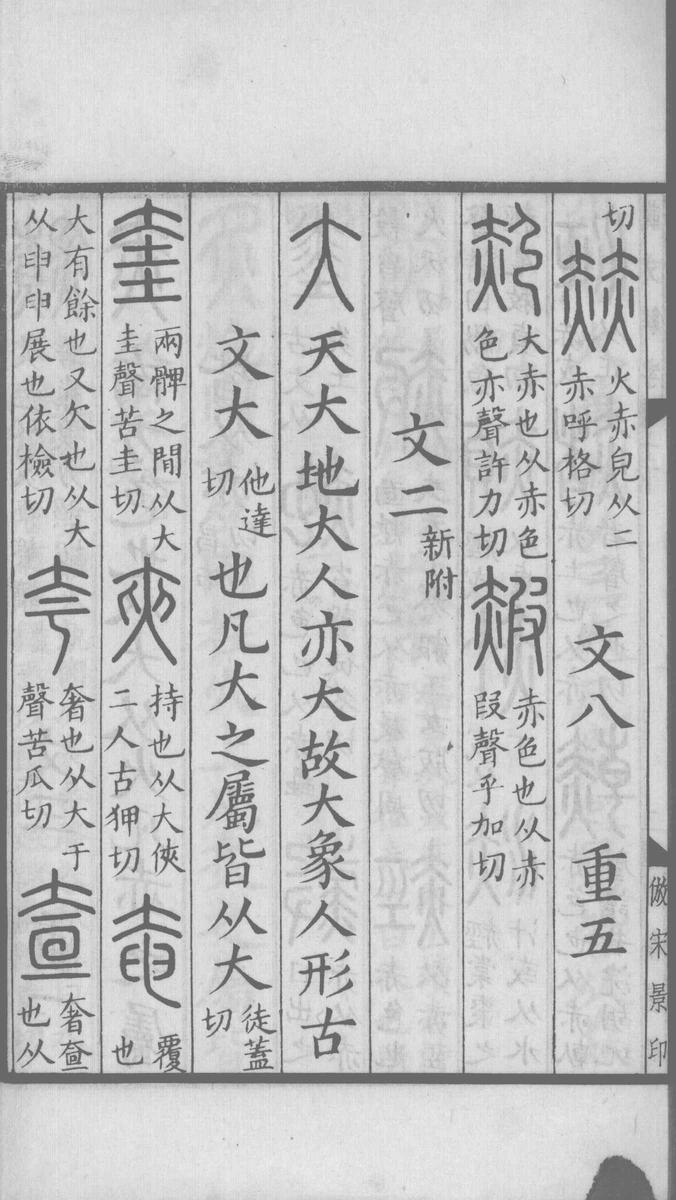 切赫火赤皃从二赤呼格切　文八　重五
赩大赤也从赤色色亦聲許力切赮赤色也从赤叚聲乎加切
文二新附
大天大地大人亦大故大象人形古
文大他達切也凡大之屬皆从大徒蓋切
奎兩髀之間从大圭聲苦圭切夾持也从大俠二人古狎切奄覆也
大有餘也又欠也从大从申申展也依檢切夸奢也从大于聲苦瓜切奢也从
倣宋景印